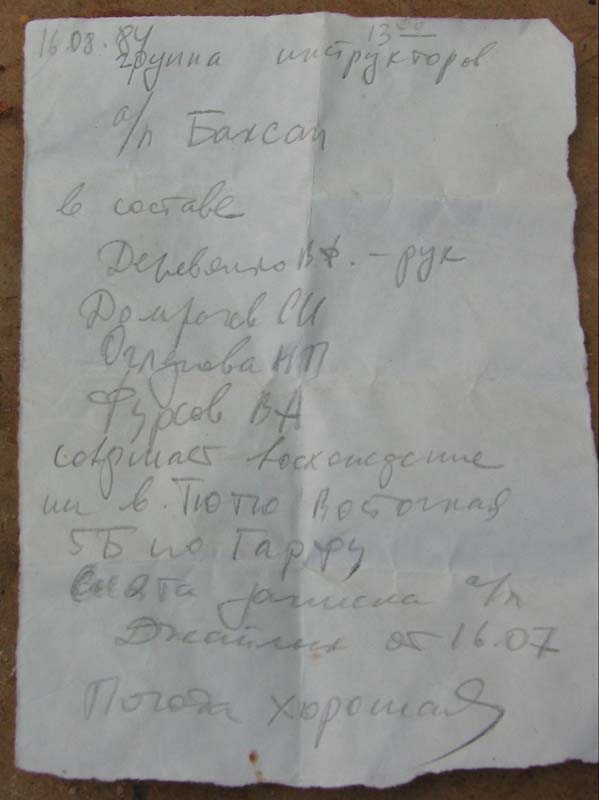 16.08.84 13⁰⁰
группа инструкторов
а/л Баксан
в составе
Деревянко В Ф. – рук
Домрачев СИ
НП
Фурсов ВА
совершает восхождение
на в. Тютю Восточная
5Б по Гарфу
Снята записка а/л
Джайлык от 16.07
Погода хорошая